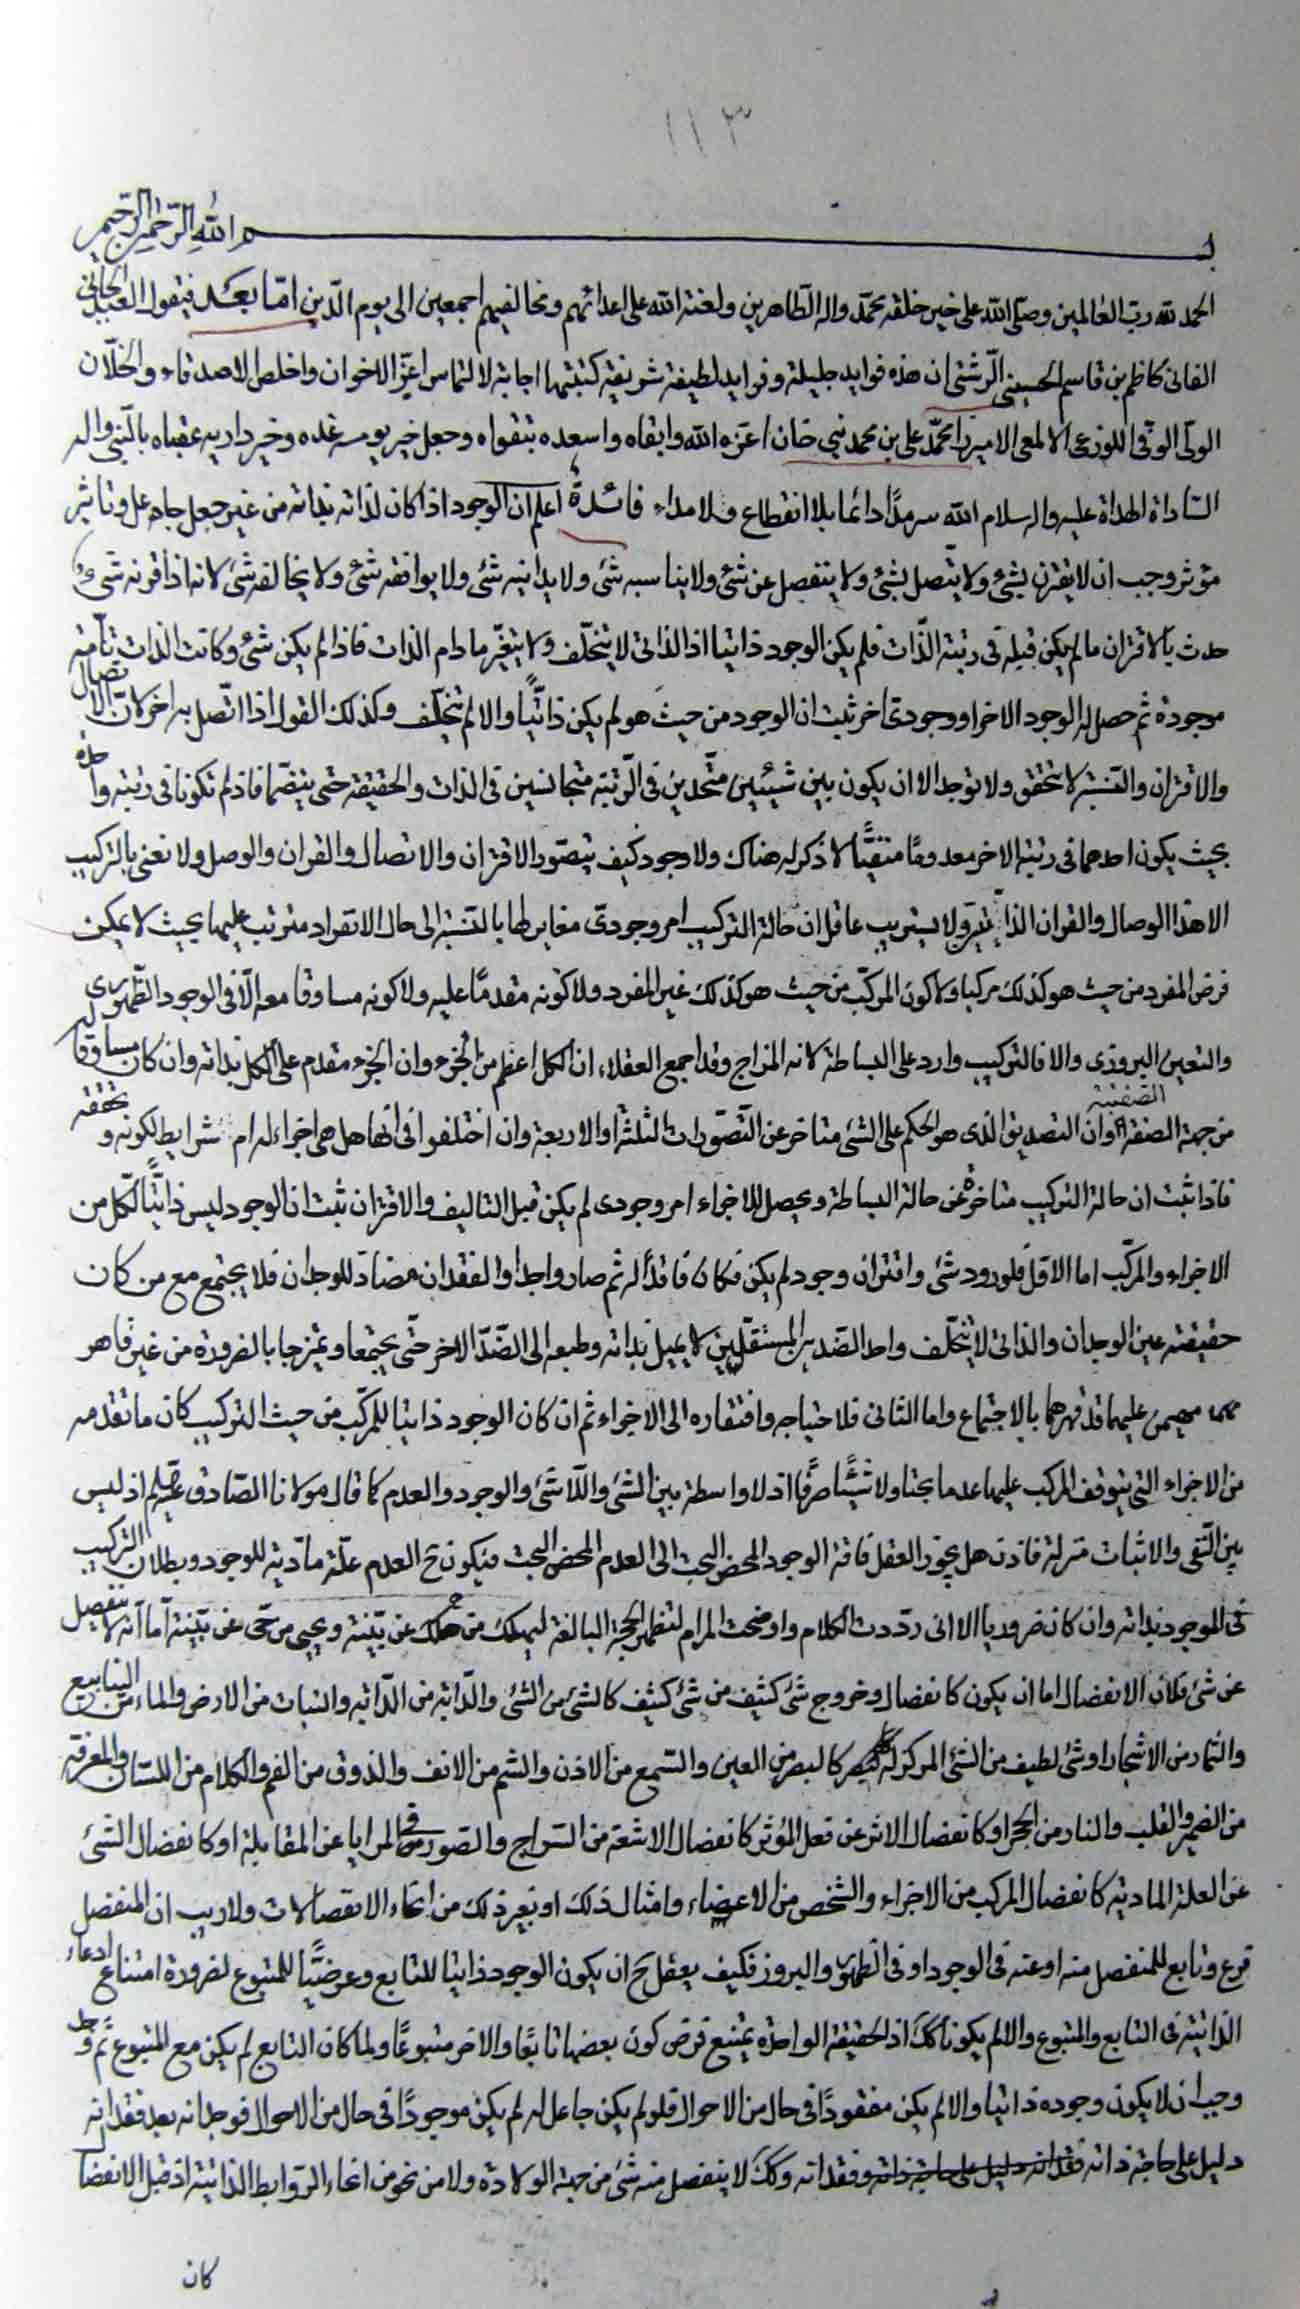 ١١٣
بسم الله الرحمن الرحيم
الحمد لله رب العالمين وصلى الله على خير خلقه محمد واله الطاهرين ولعنة الله على اعدائهم ومخالفيهم اجمعين الى يوم الدين اما بعد فيقول العبد الجانى
الفانى كاظم بن قاسم الحسينى الرشتى ان هذه فوايد جليلة وفرايد لطيفة شريفة كتبتها اجابة لالتماس اعز الاخوان واخلص الاصدقاء والخلان
الولى الوفى اللوذعى الالمعى الاميرزا محمد على بن محمد نبى خان اعزه الله وابقاه واسعده بتقواه وجعل خير يوميه غده وخير داريه عقباه بالنبى واله
السادات الهداة عليه واله سلام الله سرمدا دائما بلا انقطاع ولا مداء فائدة اعلم ان الوجود اذا كان لذاته بذاته من غير جعل جاعل وتاثير
مؤثر وجب ان لا يقترن بشئ ولا يتصل بشئ ولا ينفصل عن شئ ولا يناسبه شئ ولا يدانيه شئ ولا يوافقه شئ ولا يخالفه شئ لانه اذا قرنه شئ
حدث بالاقتران ما لم يكن قبله فى رتبة الذات فلم يكن الوجود ذاتيا اذ الذاتى لا يتخلف ولا يتغير ما دام الذات فاذا لم يكن شئ وكانت الذات تامة
موجودة ثم حصل له الوجود الاخر او وجودى اخر ثبت ان الوجود من حيث هو لم يكن ذاتيا والا لم يتخلف وكذلك القول اذا اتصل به اخر لان الاتصال
والاقتران والنسبة لا تتحقق ولا توجد الا ان يكون بين شيئين متحدين فى الرتبة متجانسين فى الذات والحقيقة حتى ينضما فاذا لم تكونا فى رتبة واحدة
بحيث يكون احدهما فى رتبة الاخر معدوما منتفيا لا ذكر له هناك ولا وجود كيف يتصور الاقتران والاتصال والقران والوصل ولا نعنى بالتركيب
الا هذا الوصال والقران الذاتيين ولا يستريب عاقل ان حالة التركيب امر وجودى مغاير لها بالنسبة الى حال الانفراد مترتب عليها بحيث لا يمكن
فرض المفرد من حيث هو كذلك مركبا ولا كون المركب من حيث هو كذلك غير المفرد ولا كونه مقدما عليه ولا كونه مساوقا معه الا فى الوجود الظهورى
والتعين البروزى والا فالتركيب وارد على البساطة لانه المزاج وقد اجمع العقلاء ان الكل اعظم من الجزء وان الجزء مقدم على الكل بذاته وان كان مساوقا له
من جهة الصفة الصفتية وان التصديق الذى هو الحكم على الشئ متاخر عن التصورات الثلثة او الاربعة وان اختلفوا فى انها هل هى اجزاء له ام شرايط لكونه وتحققه
فاذا ثبت ان حالة التركيب متاخرة عن حالة البساطة ويحصل للاجزاء امر وجودى لم يكن قبل التاليف والاقتران ثبت ان الوجود ليس ذاتيا لكل من
الاجزاء والمركب اما الاول فلورود شئ واقتران وجود لم يكن فكان فاقدا له ثم صار واجدا والفقدان مضاد للوجدان فلا يجتمع مع من كان
حقيقته عين الوجدان والذاتى لا يتخلف واحد الضدين المستقلين لا يميل بذاته وطبعه الى الضد الاخر حتى يجتمعا ويمتزجا بالضرورة من غير قاهر
مهيمن عليهما قد قهرهما بالاجتماع واما الثانى فلاحتياجه وافتقاره الى الاجزاء ثم ان كان الوجود ذاتيا للمركب من حيث التركيب كان ما تقدمه
من الاجزاء التى يتوقف المركب عليها عدما بحتا ولا شيئا صرفا اذ لا واسطة بين الشئ واللاشئ والوجود والعدم كما قال مولانا الصادق عليه السلم اذ ليس
بين النفى والاثبات منزلة فاذن هل يجوز العقل فاقة الوجود المحض البحت الى العدم المحض البحت فيكون ح العدم علة مادية للوجود وبطلان التركيب
فى الموجود بذاته وان كان ضروريا الا انى رددت الكلام واوضحت المرام لتظهر الحجة البالغة ليهلك من هلك عن بينة ويحيى من حى عن بينة اما انه لا ينفصل
عن شئ فلان الانفصال اما ان يكون كانفصال وخروج شئ كثيف من شئ كثيف كالشئ من الشئ والدابة من الدابة والنبات من الارض والماء من الينابيع
والثمار من الاشجار او شئ لطيف من الشئ المركز له كالبصر من العين والسمع من الاذن والشم من الانف والذوق من الفم والكلام من اللسان والمعرفة
من الضمير والقلب والنار من الحجر او كانفصال الاثر عن فعل المؤثر كانفصال الاشعة من السراج والصور فى المرايا عن المقابلة او كانفصال الشئ
عن العلة المادية كانفصال المركب من الاجزاء والشخص من الاعضاء وامثال ذلك او بغير ذلك من انحاء الانفصالات ولا ريب ان المنفصل
فرع وتابع للمنفصل منه او عنه فى الوجود او فى الظهور والبروز فكيف يعقل ح ان يكون الوجود ذاتيا للتابع وعرضيا للمتبوع لضرورة امتناع ادعاء
الذاتية فى التابع والمتبوع والا لم يكونا كك اذ الحقيقة الواحدة يمتنع فرض كون بعضها تابعا والاخر متبوعا ولما كان التابع لم يكن مع المتبوع ثم وجد
وجب ان لا يكون وجوده ذاتيا والا لم يكن مفقودا فى حال من الاحوال فلو لم يكن جاعل له لم يكن موجودا فى حال من الاحوال فوجدانه بعد فقدانه
دليل على حاجة ذاته فقدانه دليل على حاجة ذاته وفقدانه وكك لا ينفصل منه شئ من جهة الولادة ولا من نحو من انحاء الروابط الذاتية اذ قبل الانفصال
كان